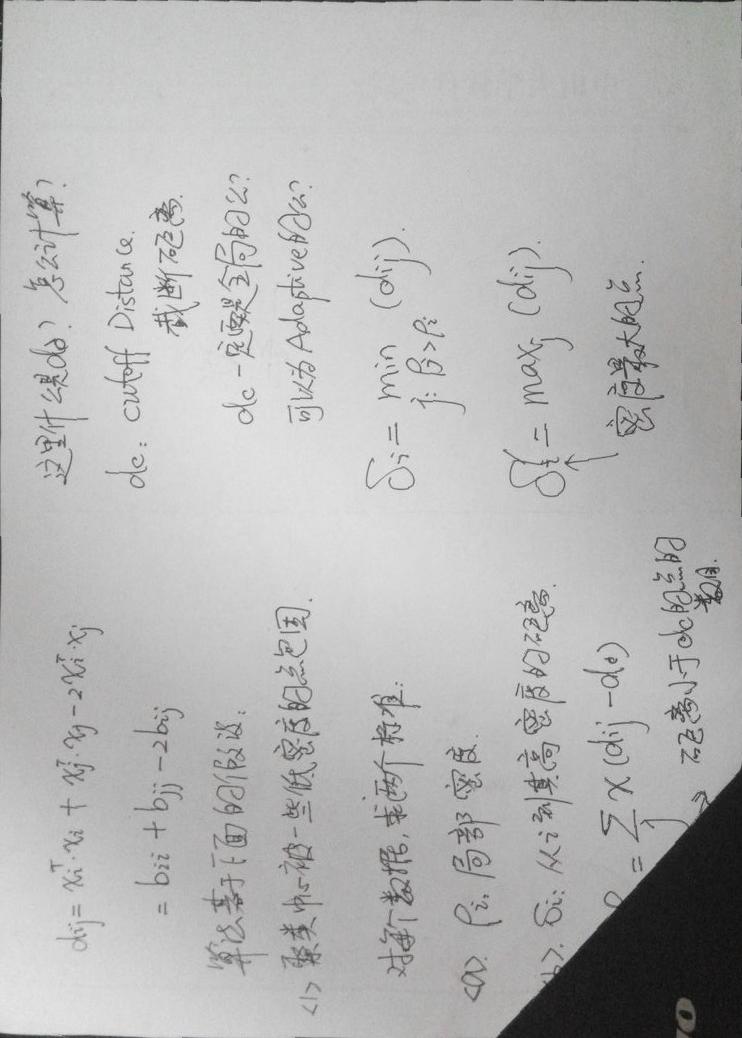 dij = xiᵀ·xi + xjᵀ·xj − 2xiᵀ·xj
= bii + bjj − 2bij
算法基于下面的假设:
<1> 聚类中心被一些低密度的点包围.
对每个数据,求两个标准:
<a>. ρi: 局部密度.
<b>. δi: 从i到其高密度的距离.
ρ = ∑j χ(dij − dc)
→ 距离小于dc的点的
数目.
这里什么是dc? 怎么计算?
dc: cutoff Distance.
截断距离.
dc 一定要是全局的么?
可以为Adaptive的么?
δi = min (dij).
j: ρj > ρi
δi = maxj (dij).
密度最大的点.